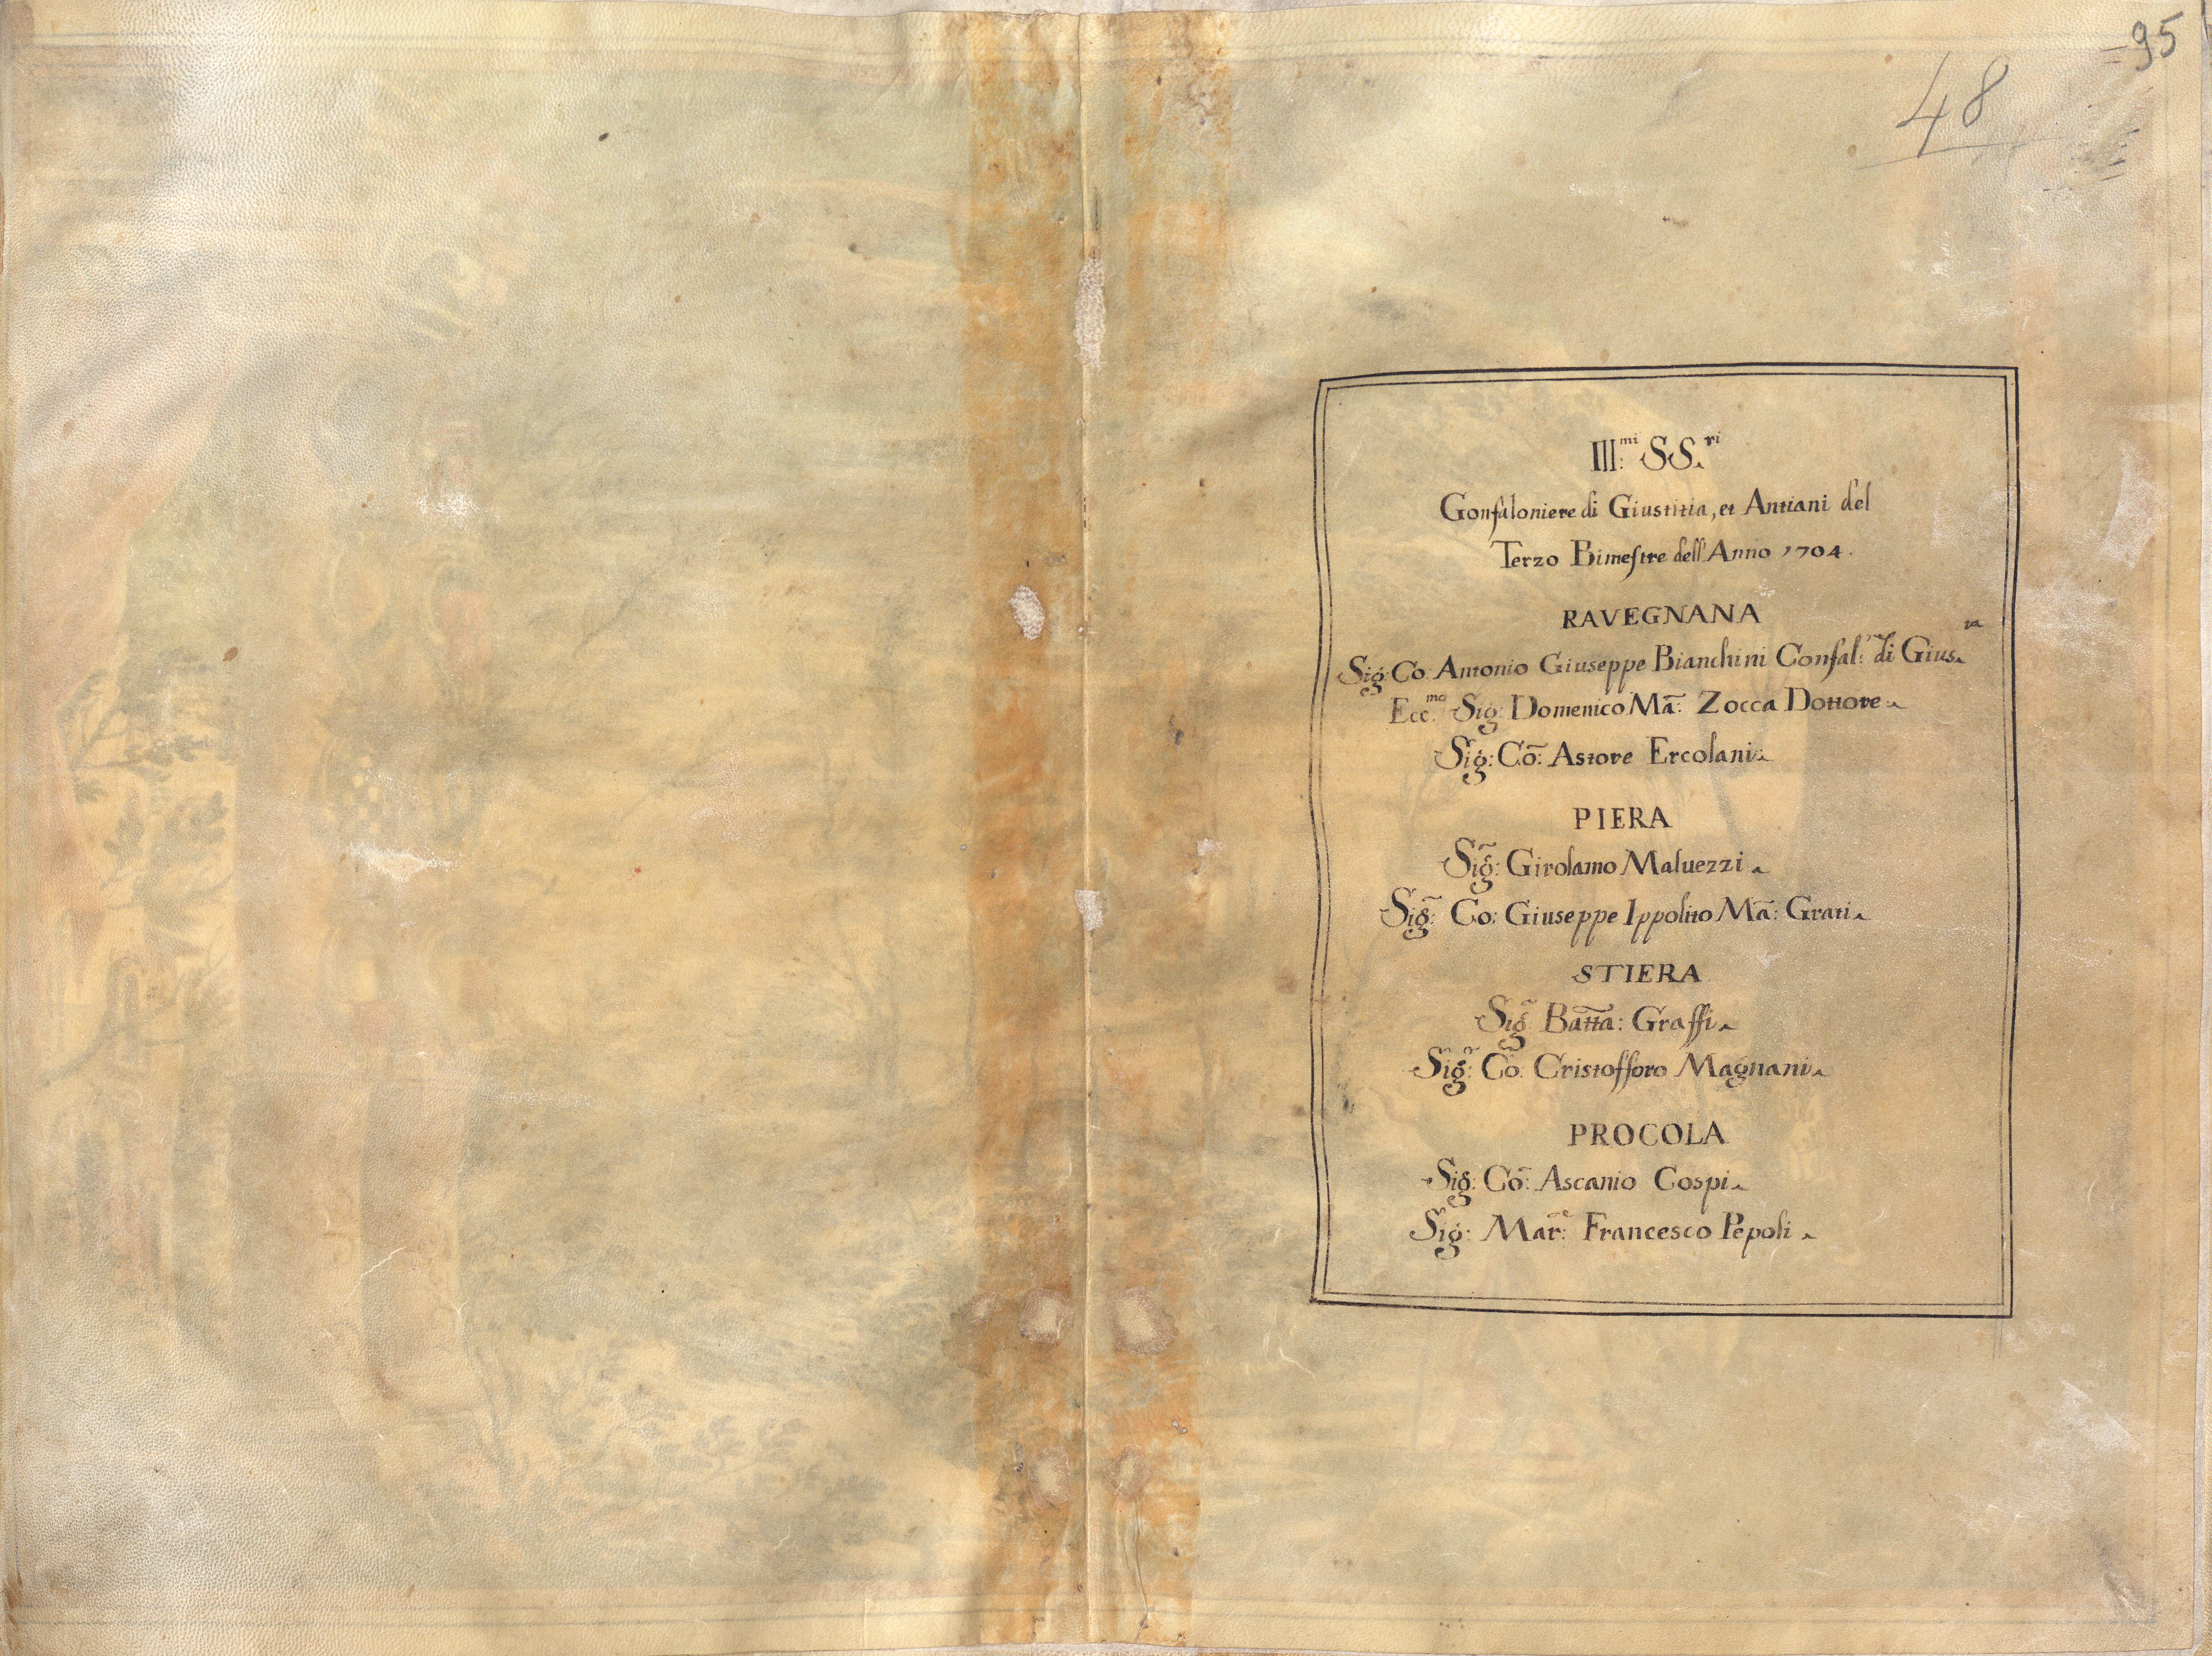 =95
48
Ill:mi SS.ri
Gonfaloniere di Giustitia, et Antiani del
Terzo Bimestre dell'Anno 1704.
RAVEGNANA
Sig: Co: Antonio Giuseppe Bianchini Confal: di Gius.ia
Ecc:mo Sig: Domenico Mã: Zocca Dottore
Sig: Cõ: Astore Ercolani
PIERA
Sig̃: Girolamo Maluezzi
Sig̃: Co: Giuseppe Ippolito Mã: Grati
STIERA
Sig̃ Batta: Graffi
Sig̃: Cõ: Cristofforo Magnani
PROCOLA
Sig: Cõ: Ascanio Cospi
Sig: Mar:e Francesco Pepoli